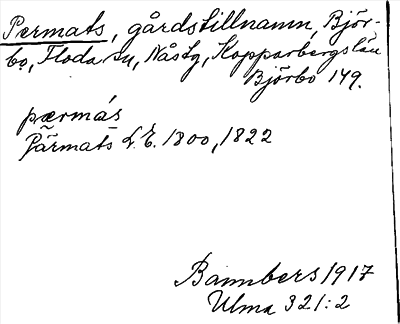 Permats, gårdstillnamn, Björ-
bo, Floda sn, Nåstg, Kopparbergs län
Björbo 149.
pærmás
Pärmats L.E. 1800, 1822
Bannbers 1917
Ulma 321:2